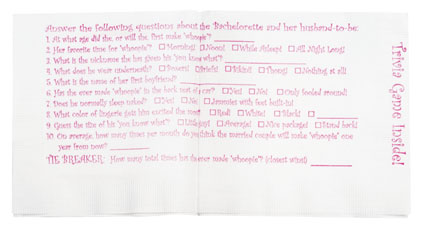 Answer the following questions about the Bachelorette and her husband-to-be:
1. At what age did she, or will she first make 'whoopie'?
2. Her favorite time for 'whoopie'? Morning! Noon! While Asleep All Night Long!
3. What is the nickname she has given his 'you know what'?
4. What does he wear underneath? Boxers! Briefs! Bikini! Thong! Nothing at all!
5. What is the name of her first boyfriend?
6. Has she ever made 'whoopie' in the back seat of a car? Yes! No! Only fooled around!
7. Does he normally sleep naked? Yes! No Jammies with feet built-in!
8. What color of lingerie gets him excited the most Red! White! Black!
9. Guess the size of his 'you know what'? Average! Nice package! Stand back!
10. On average, how many times per month do you think the married couple will make 'whoopie' one
year from now?
TIE BREAKER: How many total times has she ever made 'whoopie'? (closest wins!)
Trivia Game Inside!